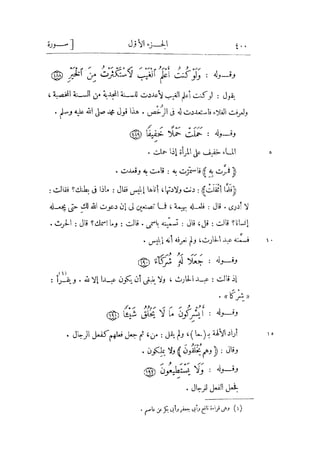 ٤٠٠ الجزء الأول [ سورة
وقوله : وَلَوْ كُنتُ أَعْلَمُ الْغَيْبَ لَاسْتَكْثَرْتُ مِنَ الْخَيْرِ (١٨٨)
يقول : لو كنت أعلم الغيب لأعددت للسنة المجدبة من السنة المخصبة ،
ولعرفت الغلاء فاستعددت له فى الرخص . هذا قول محمد صلى الله عليه وسلم .
وقوله : حَمَلَتْ حَمْلًا خَفِيفًا (١٨٩)
٥ الماء خفيف على المرأة إذا حملت .
( فَمَرَّتْ بِهِ ) فاستمرّت به : قامت به وقعدت .
( فَلَمَّا أَثْقَلَت ) : دنت ولادتها ، أتاها إبليس فقال : ماذا فى بطنك؟ فقالت :
لا أدرى . قال : فلعله بهيمة ، فما تصنعين لى إن دعوت الله لك حتى يجعله
إنسانا؟ قالت : قل ، قال : تسمّينه باسمى . قالت : وما اسمك؟ قال : الحرث .
١٠ فسمّته عبد الحارث ، ولم تعرفه أنه إبليس .
وقوله : جَعَلَا لَهُ شُرَكَاءَ (١٩٠)
إذ قالت : عبد الحارث ، ولا ينبغى أن يكون عبدا إلا لله . ويقرأ (١) :
« شِرْكًا » .
وقوله : أَيُشْرِكُونَ مَا لَا يَخْلُقُ شَيْئًا (١٩١)
١٥ أراد الآلهة بـ ( ما ) ، ولم يقل : من ، ثم جعل فعلهم كفعل الرجال .
وقال : ( وهم يُخْلَقُونَ ) ولا يملكون .
وقوله : وَلَا يَسْتَطِيعُونَ (١٩٢)
فجعل الفعل للرجال .
(١) وهى قراءة نافع وأبى جعفر وأبى بكر عن عاصم .